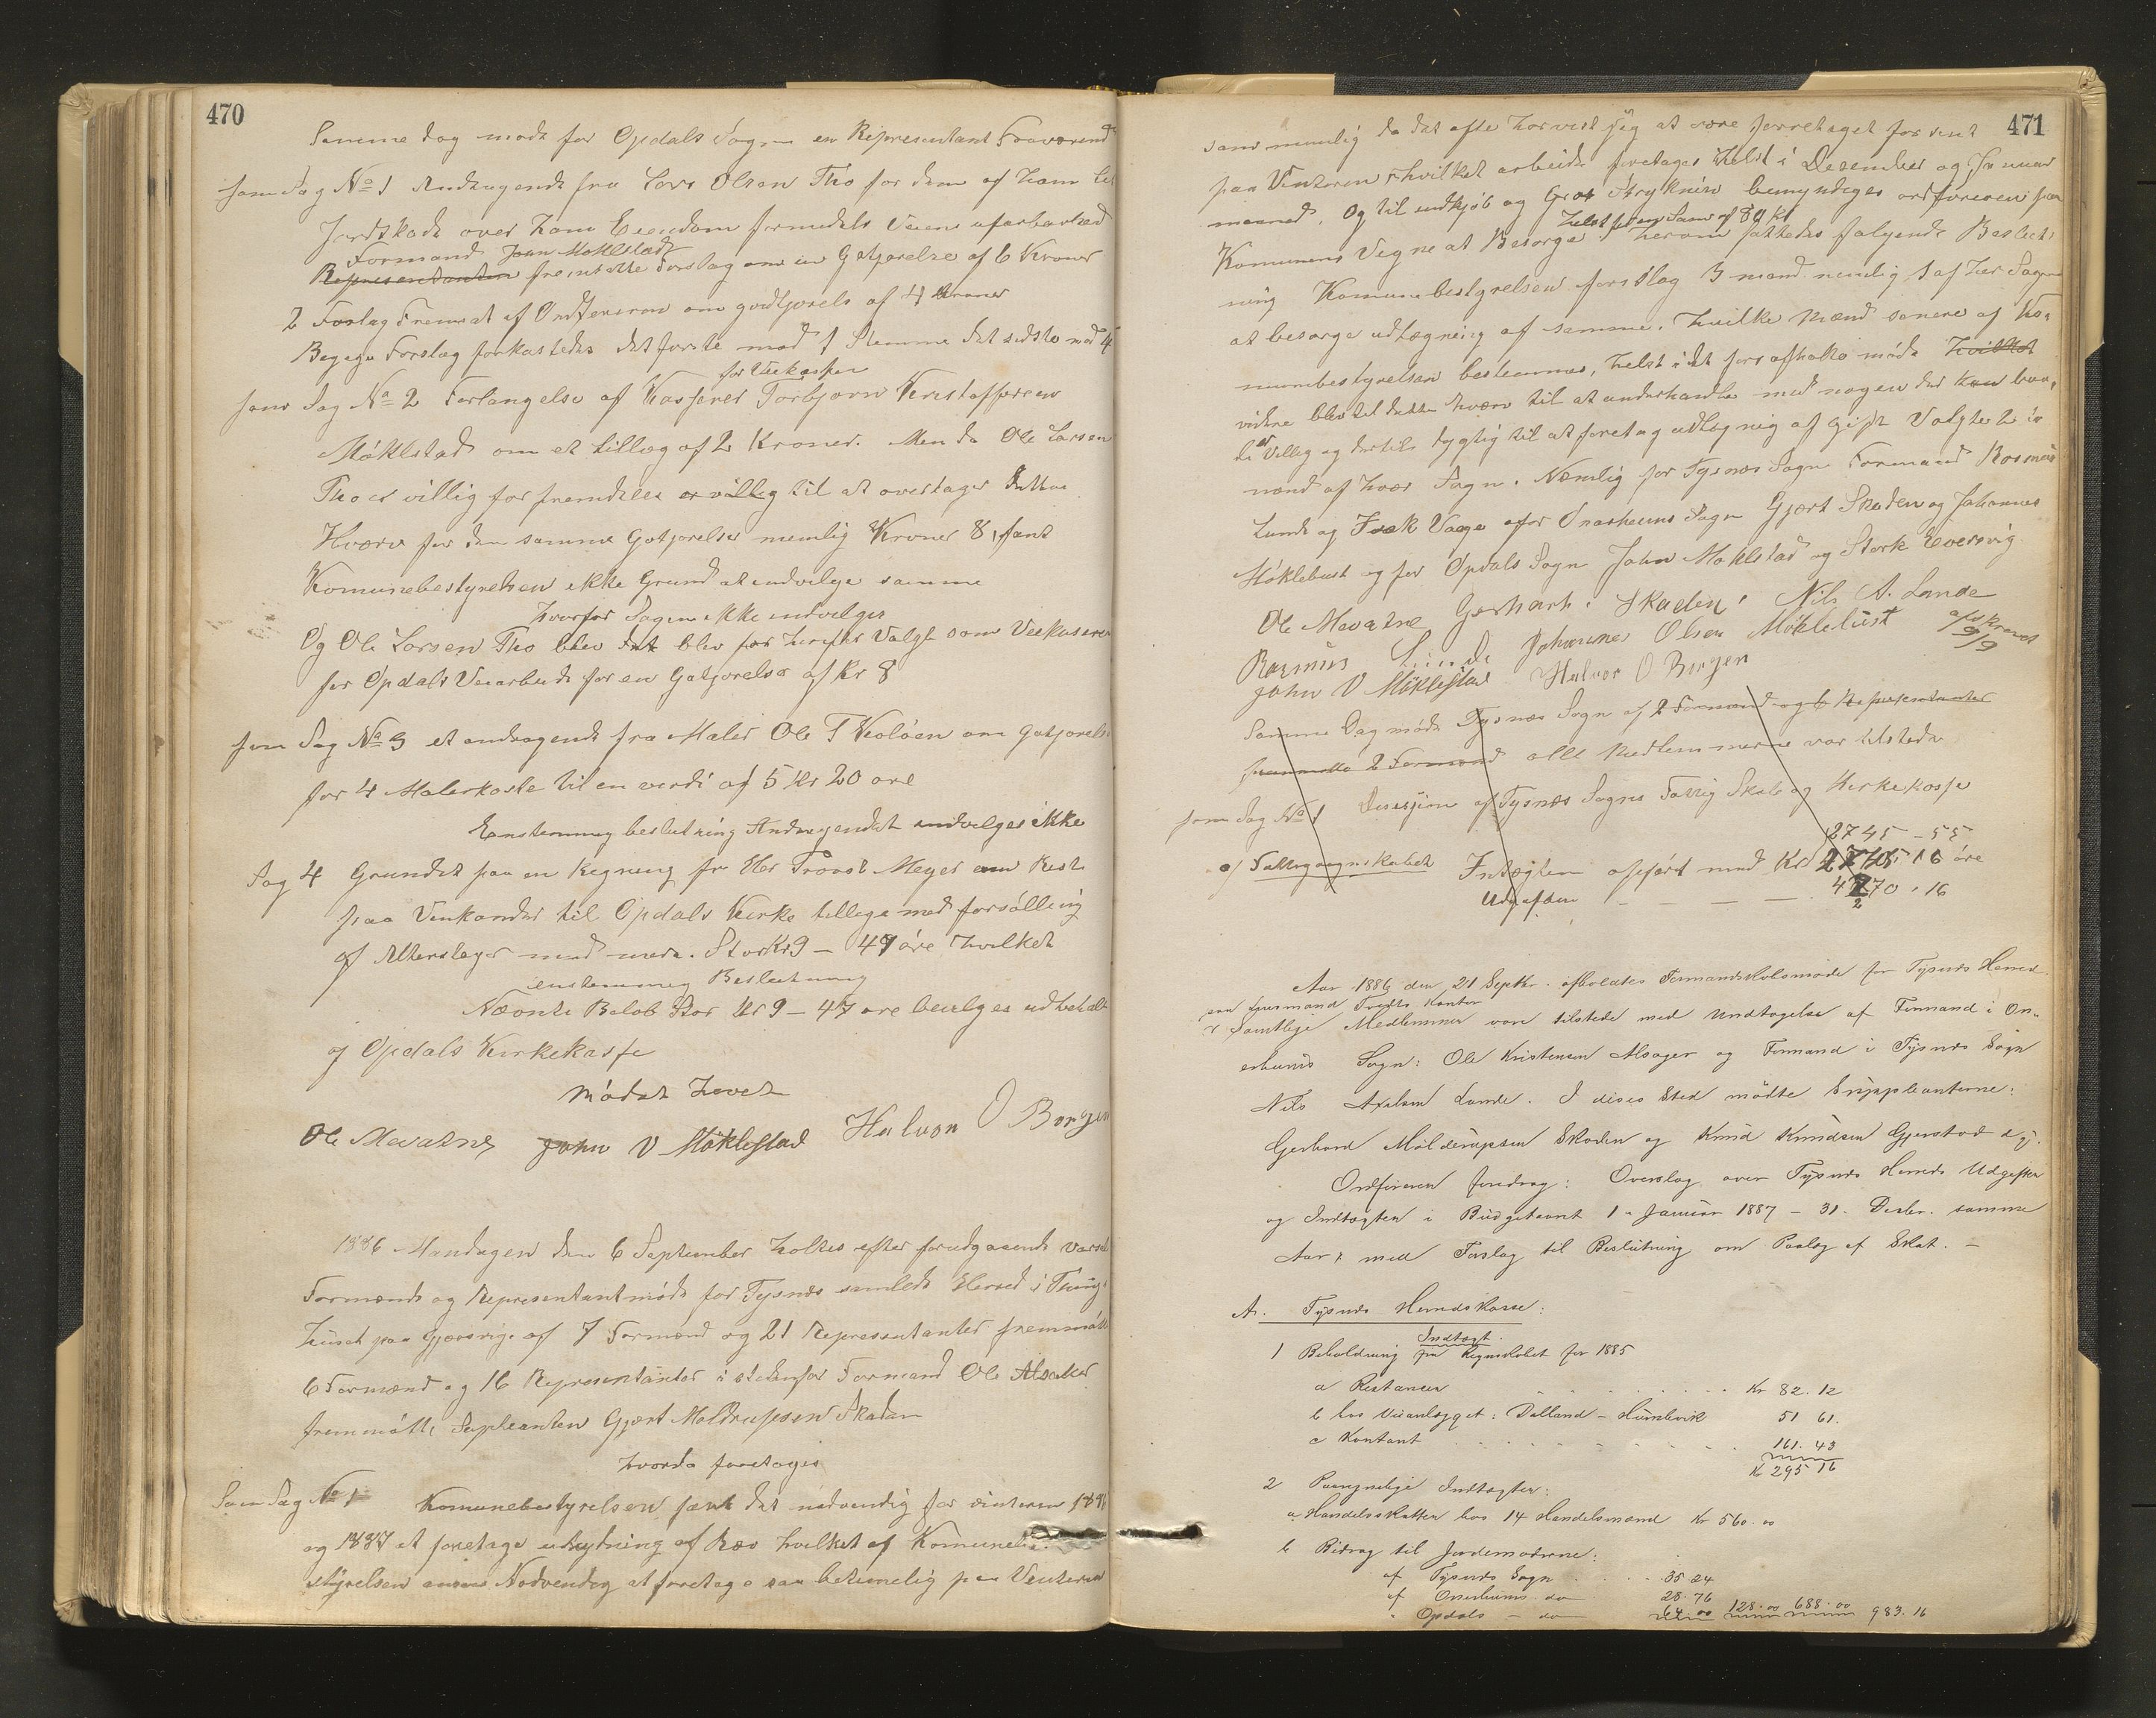 470
Samme dag møde for Opdals Sogn en Representant Fraværende
som Sag No 1 Andragende fra Lars Olsen Tho for dem af ham
Jordskade over hans Eiendom formedels Veiens
Formand John Møklestad
Representanten fremsatte forslag om en Gotjørelse af 6 Kroner
2 Forslag Fremsat af Ordføreren om godtjørels af 4 Kroner
Begge Forslag forkastedes det første mod 1 Stemme det sidste mod 4
for Veikassen
som Sag No 2 Forlangelse af Kasserer Torbjørn Kristoffersen
Møklstad om et tillæg af 2 Kroner. Men da Ole Larsen
Tho er villig for fremdeles er villig til at overtager dette
Hværv for den samme Gotjørelse nemlig Kroner 8, fant
Komunebestyrelsen ikke Grund at indvilge samme
hvorfor Sagen ikke indvilges
Og Ole Larsen Tho blev det blev for herefter Valgt som Veikaserer
for Opdals Veiarbeide for en Gotjørelse af Kr 8
som Sag No 3 et andragende fra Maler Ole T Koløen om gotjørelse
for 4 Malerkoste til en verdi af 5 Kr 20 øre
Enstemmig beslutning Andragendet indvilges ikke
Sag 4 Grundet paa en Regning fra Her Provst Meyer om Rest
paa Vinkander til Opdals Kirke tillige med forsølling
af med mere. Stor Kr 9 – 47 øre hvilket
enstemmig Beslutning
Nævnte Beløb Stor Kr 9 – 47 øre bevilges udbetalt
af Opdals Kirkekasse
Mødet hævet
Ole Mevatne John V Møklestad Halvor O Borgen
1886 Mandagen den 6 September holtes efter forudgaaende varsel
Formands og Representantmøde for Tysnes samlede Herred i Ting-
huset paa Gjærsvig. af 7 Formænd og 21 Representanter fremmøtte
6 Formænd og 16 Representanter i stedenfor Formand Ole Alsaker
fremmøtte Supleanten Gjert Moldrupsen Skaden
hvorda foretoges
Som Sag No 1 Komunebestyrelsen fant det nødvendig for vinteren 1886
og 1887 at foretage udrydning af Ræv hvilket af Komunebe-
styrelsen ansees Nødvendig at foretage saa betimelig paa Vinteren
471
som mulig da det ofte har vist sig at være foretaget for sent
paa Vinteren hvilket arbeide foretages helst i Desember og Januar
maaned. Og til indkjøb og Stryknin bemyndiges ordføreren paa
helst for en Sum af 80 Kr
Komunens Vegne at Besørge. herom fattedes følgende Beslut-
ning Komunebestyrelsen forslog 3 mand nemlig 1 af hver Sogn
at besørge udlægning af samme. Hvilke Mænd senere af Ko-
munebestyrelsen bestemmes, helst i det først afholte møde hvilket
videre blev til dette hværv til at underhandle med nogen der kan
er Villig og dertil dygtig til at foretag udlægnig af Gift Valgte 2
mænd af hver Sogn. Nemlig for Tysnes Sogn Formand Rasmus
Lunde og Isak Vaage for Onarheims Sogn Gjert Skaden og Johannes
Møklebust og for Opdals Sogn John Møklstad og Stark Eversvig
Ole Mevatne Gerhart. Skaden. Nils A. Lande
Rasmus Lunde Johannes Olsen Møklebust
afskrevet
9/9
John V Møklestad Halvor O Borgen
Samme Dag møde Tysnes Sogn af 2 Formænd og 6 Representanter
fremmøtte 2 Formænd alle Medlemmerne var tilstede
som Sag No 1 Desisjon af Tysnes Sogns Fattig Skole og Kirkekasse
2745 – 55
a) Fattigregnskabet Indtægten opført med Kr 16 øre
Udgiften – – – – 4270 . 16
2
Aar 1886 den 21 Septbr. afholdtes Formandskabsmøde for Tysnes Herred
paa Lensmand Kontor
Samtlige Medlemmer vare tilstede med Undtagelse af Formand i On-
erheims Sogn: Ole Kristensen Alsager og Formand i Tysnes Sogn
Nils Axelsen Lande. I disses Sted mødte Suppleanterne:
Gerhard Molderupsen Skaden og Knud Knudsen Gjerstad
Ordføreren foredrog: Overslag over Tysnes Herreds Udgifter
og Indtægten i Budgetaaret 1ste Januar 1887 – 31. Decbr. samme
Aar, med Forslag til Beslutning om Paalæg af Skat. –
A. Tysnes Herredskasse:
Indtægt.
1 Beholdning fra Regnskabet for 1885
a Restancer Kr 82. 12
b hos Veianlægget: Dalland – Humlevik 51 61.
c Kontant 161. 43
Kr 295 16
2 Paaregnelige Indtægter:
a Handelsskatten hos 14 Handelsmænd Kr 560. 00
b Bidrag til Jordemødrene:
af Tysnes Sogn 35 24
af Onerheims do 28. 76
" Opdals – do 64. 00 128. 00 688. 00 983. 16